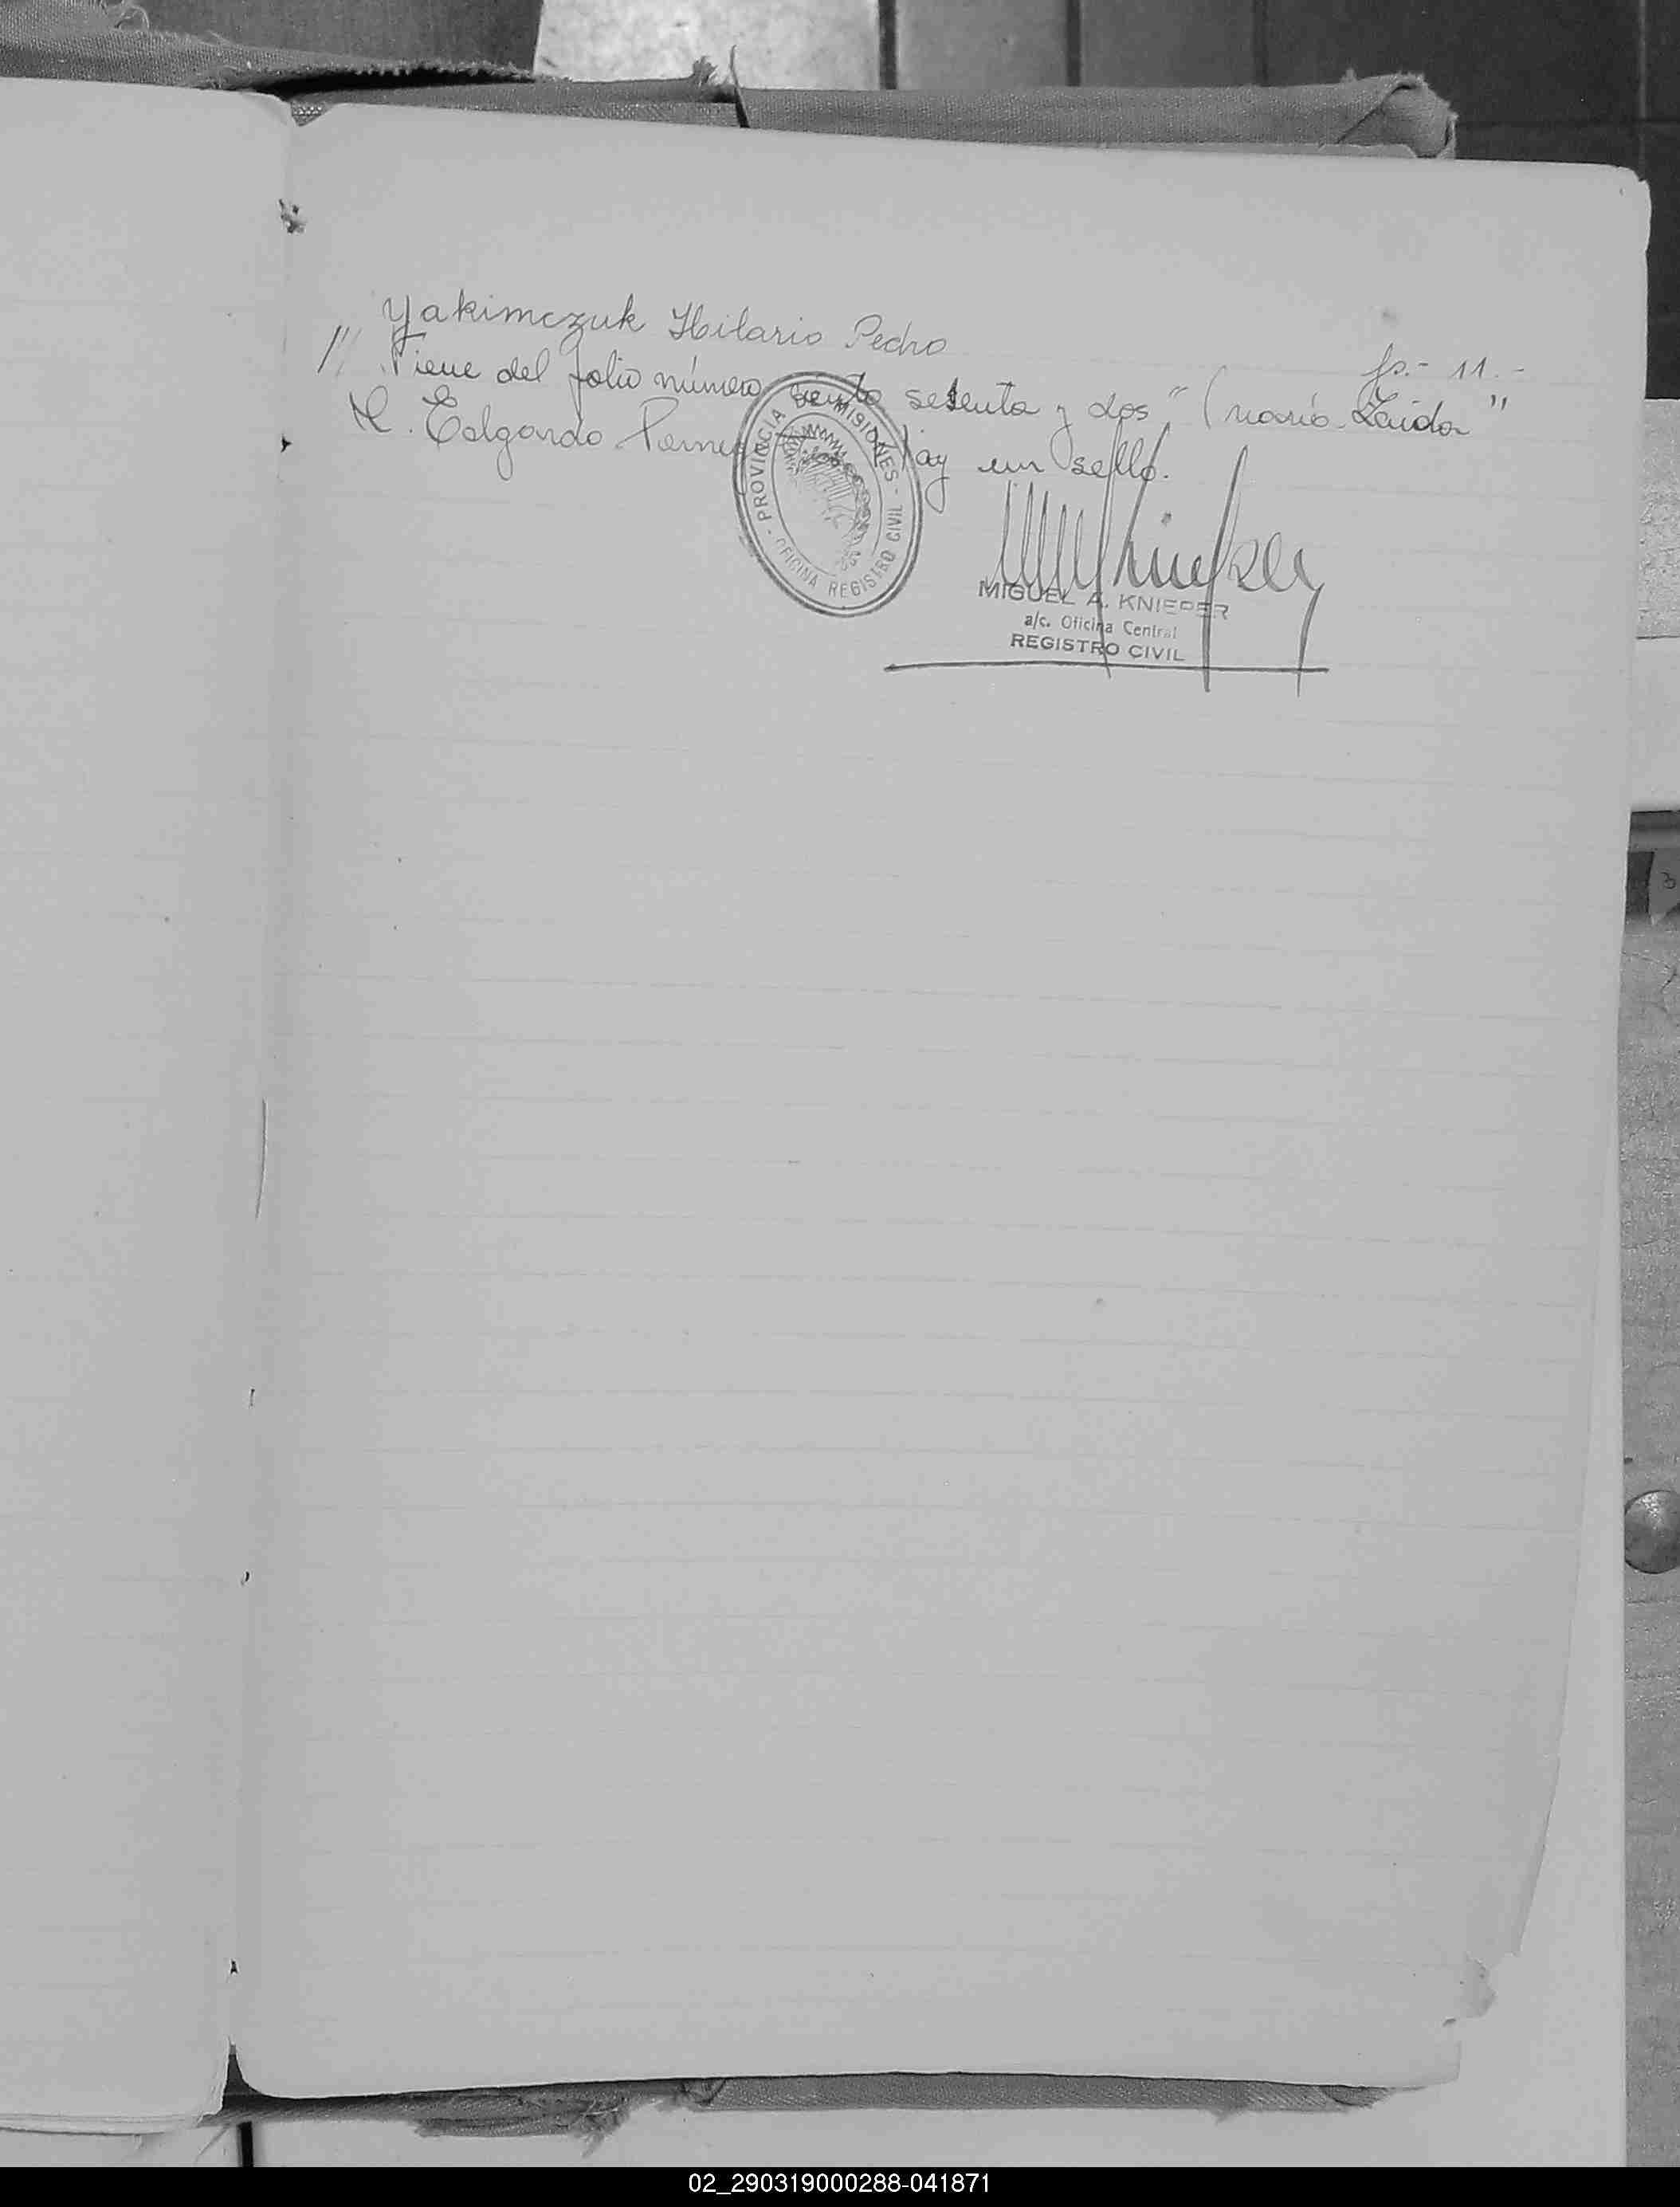 Yakimczuk Hilario Pedro
fs.- 11.-
/// Viene del folio número ciento sesenta y dos " (María Zaida "
Edgardo hay un sello.
PROVINCIA DE MISIONES - OFICINA REGISTRO CIVIL -
MIGUEL A. KNIEPER
a/c. Oficina Central
REGISTRO CIVIL
3
02_290319000288-041871